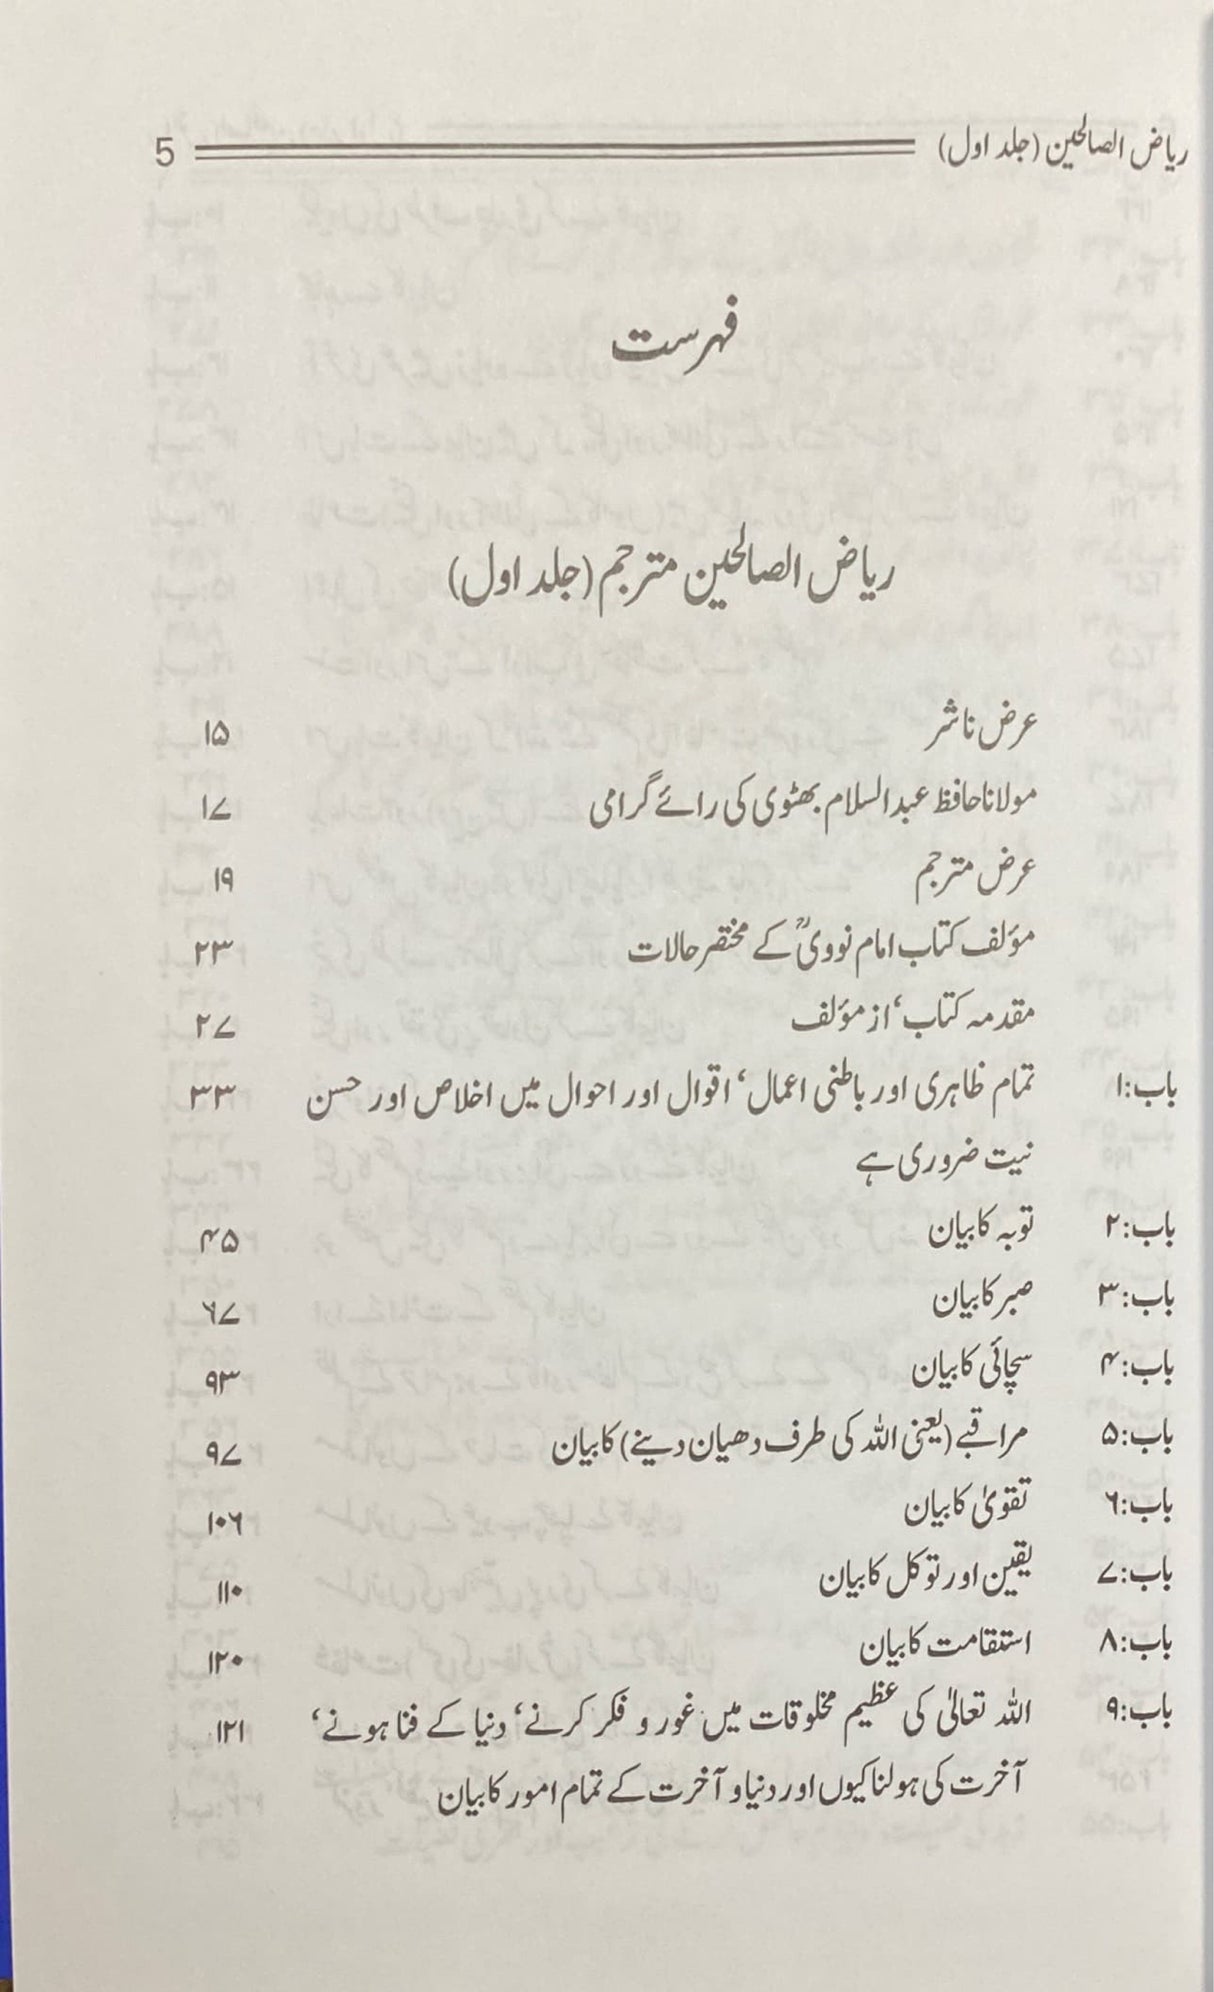 ریاض الصالحین (جلد اول) 5
فہرست
ریاض الصالحین مترجم (جلد اول)
عرض ناشر ۱۵
مولانا حافظ عبدالسلام بھٹوی کی رائے گرامی ۱۷
عرض مترجم ۱۹
مؤلف کتاب امام نوویؒ کے مختصر حالات ۲۳
مقدمہ کتاب‘ از مؤلف ۲۷
باب:۱ تمام ظاہری اور باطنی اعمال‘ اقوال اور احوال میں اخلاص اور حسن ۳۳
نیت ضروری ہے
باب:۲ توبہ کا بیان ۴۵
باب:۳ صبر کا بیان ۶۷
باب:۴ سچائی کا بیان ۹۳
باب:۵ مراقبے (یعنی اللہ کی طرف دھیان دینے) کا بیان ۹۷
باب:۶ تقویٰ کا بیان ۱۰۶
باب:۷ یقین اور توکل کا بیان ۱۱۰
باب:۸ استقامت کا بیان ۱۲۰
باب:۹ اللہ تعالیٰ کی عظیم مخلوقات میں غور و فکر کرنے‘ دنیا کے فنا ہونے‘ ۱۲۱
آخرت کی ہولناکیوں اور دنیا و آخرت کے تمام امور کا بیان